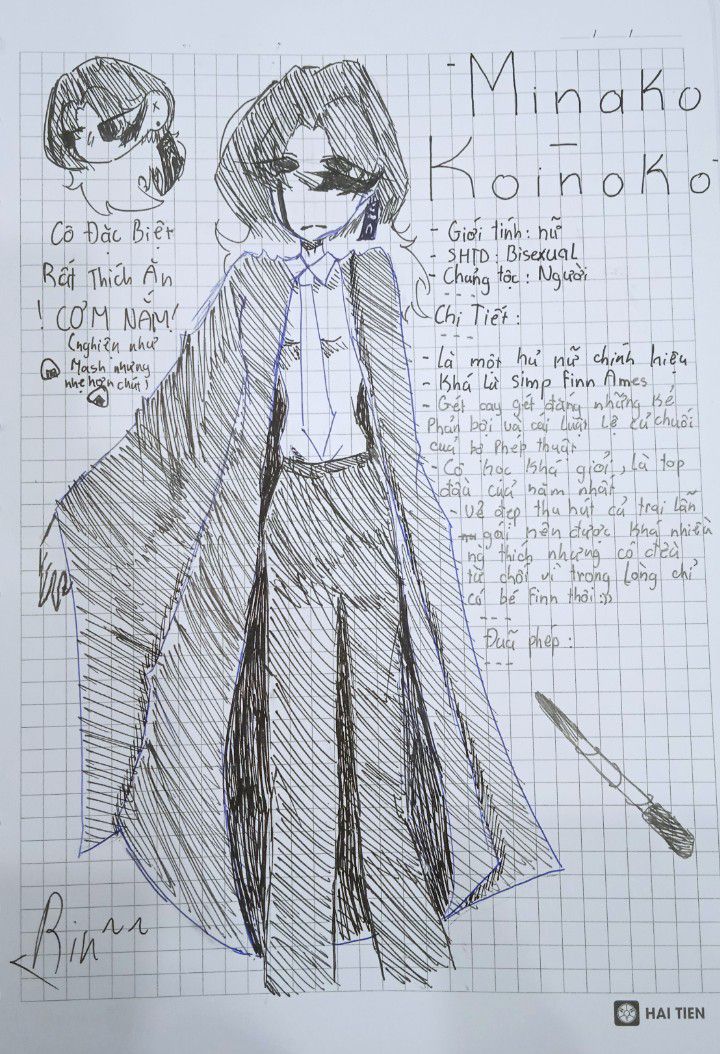 - Minako
Koinoko -
- Giới tính: nữ
- SHTD: Bisexual
- Chủng tộc: Người
Chi Tiết:
- Là một hủ nữ chính hiệu
- Khá là simp Finn Ames
- Gét cay gét đắng những kẻ
Phản bội và cái luật lệ củ chuối
của bộ Phép thuật
- Cô học khá giỏi, là top
đầu của năm nhất
- Vẻ đẹp thu hút cả trai lẫn
gái nên được khá nhiều
ng thích nhưng cô đều
từ chối vì trong lòng chỉ
có bé Finn thôi :))
Đuã phép:
Cô Đặc Biệt
Rất Thích Ăn
! CƠM NẮM!
(nghiện như
Mash nhưng
nhẹ hơn chút)
Rin~~
HAI TIEN